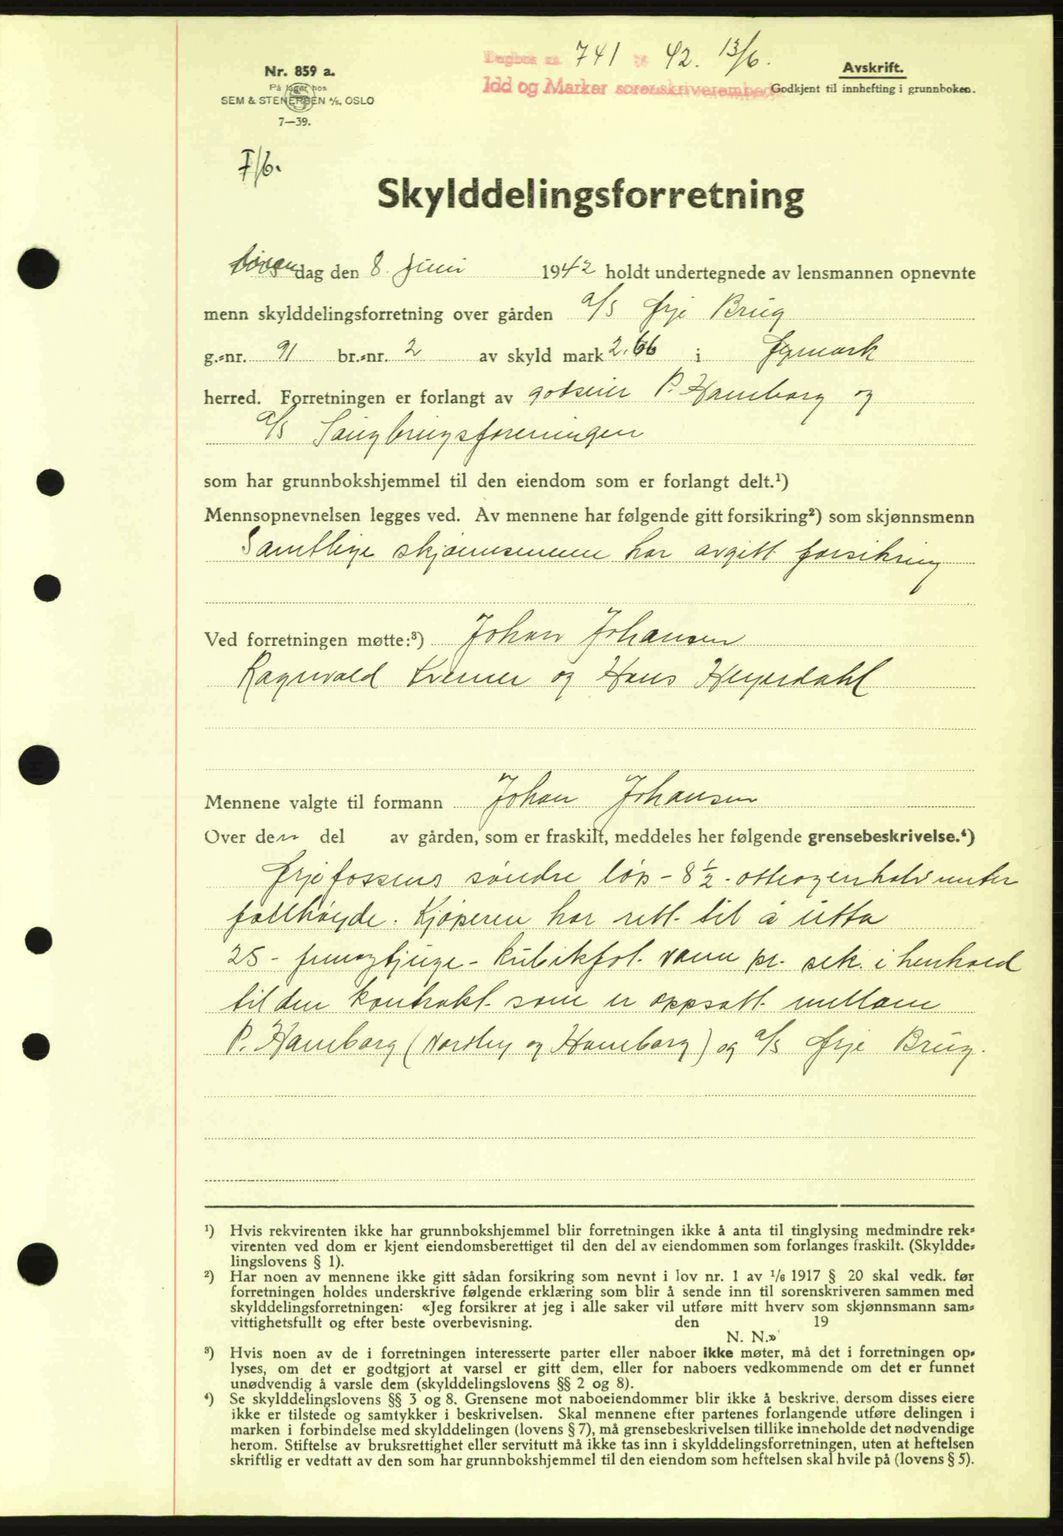 Dagbok nr. 741 19 42. 13/6.
Idd og Marker sorenskriverembede
Avskrift.
Godkjent til innhefting i grunnboken.
Nr. 859 a.
På lager hos
SEM & STENERSEN A/S. OSLO
7—39.
F/6.
Skylddelingsforretning
dag den 8. juni 1942 holdt undertegnede av lensmannen opnevnte
menn skylddelingsforretning over gården A/S Ørje Brug
g.-nr. 91 br.-nr. 2 av skyld mark 2.66 i Øymark
herred. Forretningen er forlangt av godseier P. Hamborg og
A/S Saugbrugsforeningen
som har grunnbokshjemmel til den eiendom som er forlangt delt.¹)
Mennsopnevnelsen legges ved. Av mennene har følgende gitt forsikring²) som skjønnsmenn
Samtlige skjønnsmenn har avgitt forsikring
Ved forretningen møtte:³) Johan Johansen
Ragnvald Kremer og Hans Heyerdahl
Mennene valgte til formann Johan Johansen
Over den del av gården, som er fraskilt, meddeles her følgende grensebeskrivelse.⁴)
Ørjefossens søndre løp - 8½ - otteogenhalv meter
fallhøyde. Kjøperen har rett til å utta
25 - femogtjuge - kubikfot vann pr. sek. i henhold
til den kontrakt som er oppsatt mellem
P. Hamborg (Nordby og Hamborg) og A/S Ørje Brug.
¹) Hvis rekvirenten ikke har grunnbokshjemmel blir forretningen ikke å anta til tinglysing medmindre rek-
virenten ved dom er kjent eiendomsberettiget til den del av eiendommen som forlanges fraskilt. (Skyldde-
lingslovens § 1).
²) Har noen av mennene ikke gitt sådan forsikring som nevnt i lov nr. 1 av 1/6 1917 § 20 skal vedk. før
forretningen holdes underskrive følgende erklæring som blir å sende inn til sorenskriveren sammen med
skylddelingsforretningen: «Jeg forsikrer at jeg i alle saker vil utføre mitt hverv som skjønnsmann sam-
vittighetsfullt og efter beste overbevisning. den 19
N. N.»
³) Hvis noen av de i forretningen interesserte parter eller naboer ikke møter, må det i forretningen op-
lyses, om det er godtgjort at varsel er gitt dem, eller for naboers vedkommende om det er funnet
unødvendig å varsle dem (skylddelingslovens §§ 2 og 8).
⁴) Se skylddelingslovens §§ 3 og 8. Grensene mot naboeiendommer blir ikke å beskrive, dersom disses eiere
ikke er tilstede og samtykker i beskrivelsen. Skal mennene efter partenes forlangende utføre delingen i
marken i forbindelse med skylddelingen (lovens § 7), må grensebeskrivelsen tillike inneholde det nødvendige
herom. Stiftelse av bruksrettighet eller servitutt må ikke tas inn i skylddelingsforretningen, uten at heftelsen
skriftlig er vedtatt av den som har grunnbokshjemmel til den eiendom som heftelsen skal hvile på (lovens § 5).